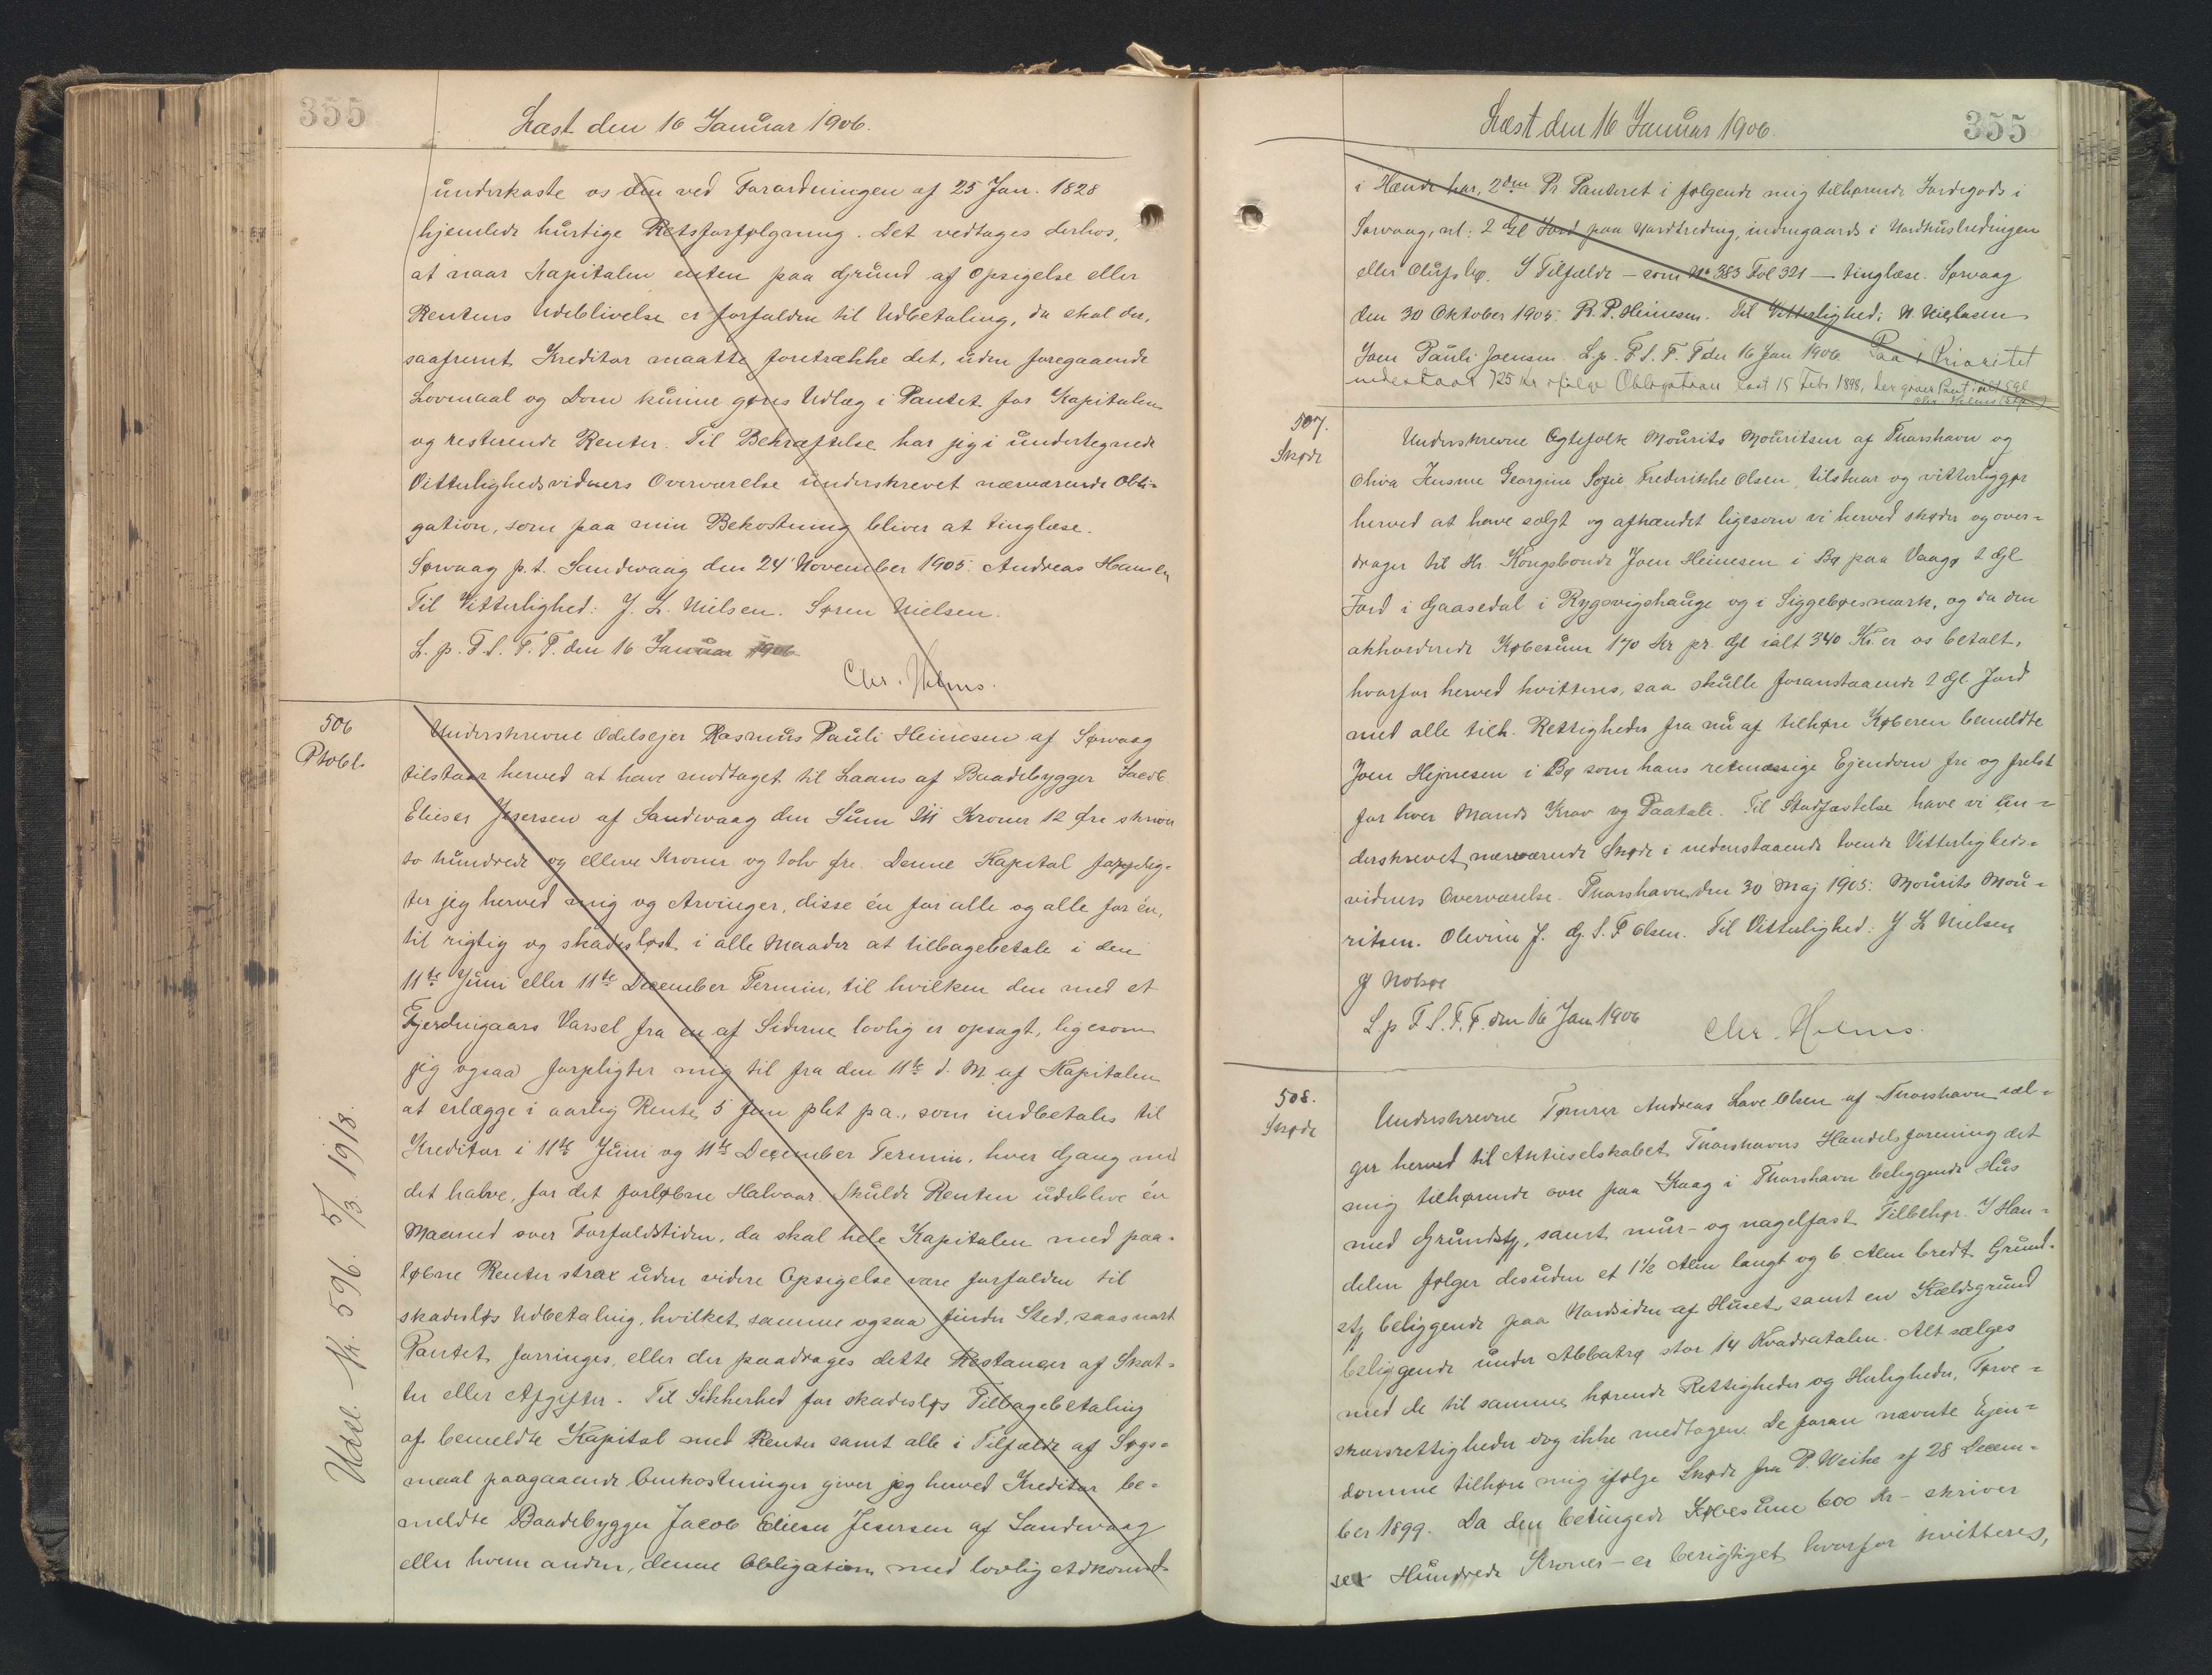 355
Læst den 16 Januar 1906.
underkaste os den ved Forordningen af 25 Jan. 1828
hjemlede hurtige Retsforfølgning. Det vedtages derhos,
at naar Kapitalen enten paa Grund af Opsigelse eller
Rentens Udeblivelse er forfalden til Udbetaling, da skal der,
saafremt Kreditor maatte foretrække det, uden foregaaende
Lovmaal og Dom kunne gøres Udlæg i Pantet for Kapitalen
og resterende Renter. Til Bekræftelse har jeg i undertegnede
Vitterlighedsvidners Overværelse underskrevet nærværende Obli-
gation, som paa min Bekostning bliver at tinglæse.
Sørvaag p.t. Sandevaag den 24 November 1905. Andreas Hansen
Til Vitterlighed: J. L. Nielsen. Søren Nielsen.
L. p. F. S. T. T. den 16 Januar 1906
Chr. Holms.
506
Ptobl.
Underskrevne Odelsejer Rasmus Pauli Heinesen af Sørvaag
tilstaar herved at have modtaget til Laans af Baadebygger Jacob
Elieser Jesersen af Sandevaag den Sum 211 Kroner 12 Øre skriver
to hundrede og elleve Kroner og tolv Øre. Denne Kapital forplig-
ter jeg herved mig og Arvinger, disse én for alle og alle for én,
til rigtig og skadesløst i alle Maader at tilbagebetale i den
11te Juni eller 11te December Termin, til hvilken den med et
Fjerdingaars Varsel fra en af Siderne lovlig er opsagt, ligesom
jeg ogsaa forpligter mig til fra den 11te d. M. af Kapitalen
at erlægge i aarlig Rente 5 fem pCt p.a., som indbetales til
Kreditor i 11te Juni og 11te December Termin, hver Gang med
det halve, for det forløbne Halvaar. Skulde Renten udeblive én
Maaned over Forfaldstiden, da skal hele Kapitalen med paa-
løbne Renter strax uden videre Opsigelse være forfalden til
skadesløs Udbetaling, hvilket samme ogsaa finder Sted, saasnart
Pantet forringes, eller der paadrages dette Restancer af Skat-
ter eller Afgifter. Til Sikkerhed for skadesløs Tilbagebetaling
af bemeldte Kapital med Renter samt alle i Tilfælde af Søgs-
maal paagaaende Omkostninger giver jeg herved Kreditor be-
meldte Baadebygger Jacob Elieser Jesersen af Sandevaag
eller hvem anden, denne Obligation med lovlig Adkomst
Udsl. Nr. 596. 5/3 1918.
Læst den 16 Januar 1906.
355
i Hænde har, 2den Pr Panteret i følgende mig tilhørende Jordegods i
Sørvaag, nl: 2 Gl Jord paa Nordtreding, indengaards i Nordhustredingen
eller Olufsbø. I Tilfælde — som No 383 Fol 321 — tinglæse. Sørvaag
den 30 Oktober 1905. R. P. Heinesen. Til Vitterlighed: N. Niclasen
Joen Pauli Joensen. L. p. F. S. T. T den 16 Jan 1906 Paa 1 Prioritet
indestaar 725 Kr ifølge Obligation læst 15 Feb. 1898, der giver Pant i alt 5 Gl
Chr Holms
507.
Skøde
Underskrevne Ægtefolk Mourits Mouritsen af Thorshavn og
Oliva Georgine Sofie Frederikke Olsen, tilstaar og vitterliggør
herved at have solgt og afhændet ligesom vi herved skøder og over-
drager til Hr. Kongsbonde Joen Heinesen i Bø paa Vaagø 2 Gl
Jord i Gaasedal i Rygsvigshauge og i Siggebøesmark, og da den
akkorderede Købesum 170 Kr pr. Gl ialt 340 Kr. er os betalt,
hvorfor herved kvitteres, saa skulle foranstaaende 2 Gl. Jord
med alle tilh. Rettigheder fra nu af tilhøre Køberen bemeldte
Joen Hejnesen i Bø som hans retmæssige Ejendom fri og frelst
for hver Mands Krav og Paatale. Til Stadfæstelse have vi un-
derskrevet nærværende Skøde i nedenstaaende tvende Vitterligheds-
vidners Overværelse. Thorshavn den 30 Maj 1905: Mourits Mou-
ritsen. Olevine J. G. S. F Olsen. Til Vitterlighed: J L Nielsen
J Nolsøe
L. p F. S. T. T. den 16 Jan 1906
Chr. Holms.
508.
Skøde
Underskrevne Tømrer Andreas Lave Olsen af Thorshavn sæl-
ger herved til Aktieselskabet Thorshavns Handelsforening det
mig tilhørende ovre paa Kaag i Thorshavn beliggende Hus
med Grundstk, samt mur- og nagelfast Tilbehør. I Han-
delen følger desuden et 1½ Alen langt og 6 Alen bredt Grund-
stk beliggende paa Nordsiden af Huset samt en Kældsgrund
beliggende under Abbatrø stor 14 Kvadratalen. Alt sælges
med de til samme hørende Rettigheder og Herligheder, Tørve-
skursrettigheder dog ikke medtagen. De foran nævnte Ejen-
domme tilhøre mig ifølge Skøde fra P. Weihe af 28 Decem-
ber 1899. Da den betingede Købesum 600 Kr — skriver
sex Hundrede Kroner — er berigtiget hvorfor kvitteres,